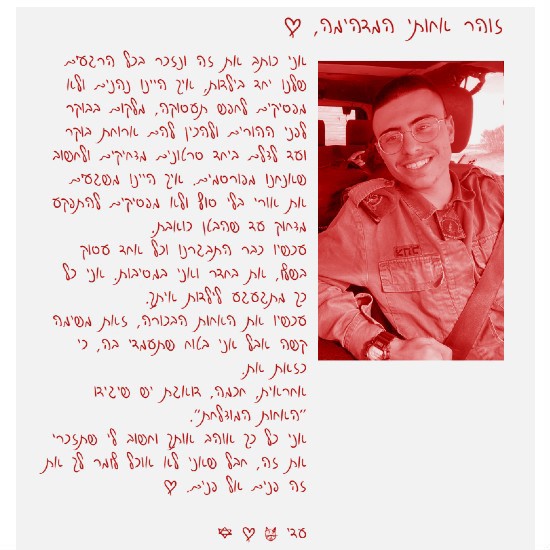 זוהר אחותי המדהימה, ♡
אני כותב את זה ונזכר בכל הרגעים
שלנו יחד בילדות. איך היינו נהנים ולא
מפסיקים לחפש תעסוקה, מלקום בבוקר
לפני ההורים ולהכין להם ארוחת בוקר
ועד לצלם ביחד סרטונים מצחיקים ולחשוב
שאנחנו מפורסמים. איך היינו משגעים
את אורי בלי סוף ולא מפסיקים להתפקע
מצחוק עד שהבטן כואבת.
עכשיו כבר התבגרנו וכל אחד עסוק
בשלו, את בחדר ואני במסיבות. אני כל
כך מתגעגע לילדות איתך.
עכשיו את האחות הבכורה, זאת משימה
קשה אבל אני בטוח שתעמדי בה, כי
כזאת את.
אחראית, חכמה, דואגת יש שיגידו
"האחות המוצלחת".
אני כל כך אוהב אותך וחשוב לי שתזכרי
את זה, חבל שאני לא אוכל לומר לך את
זה פנים אל פנים. ♡
עדי ♡ ✡
צהל